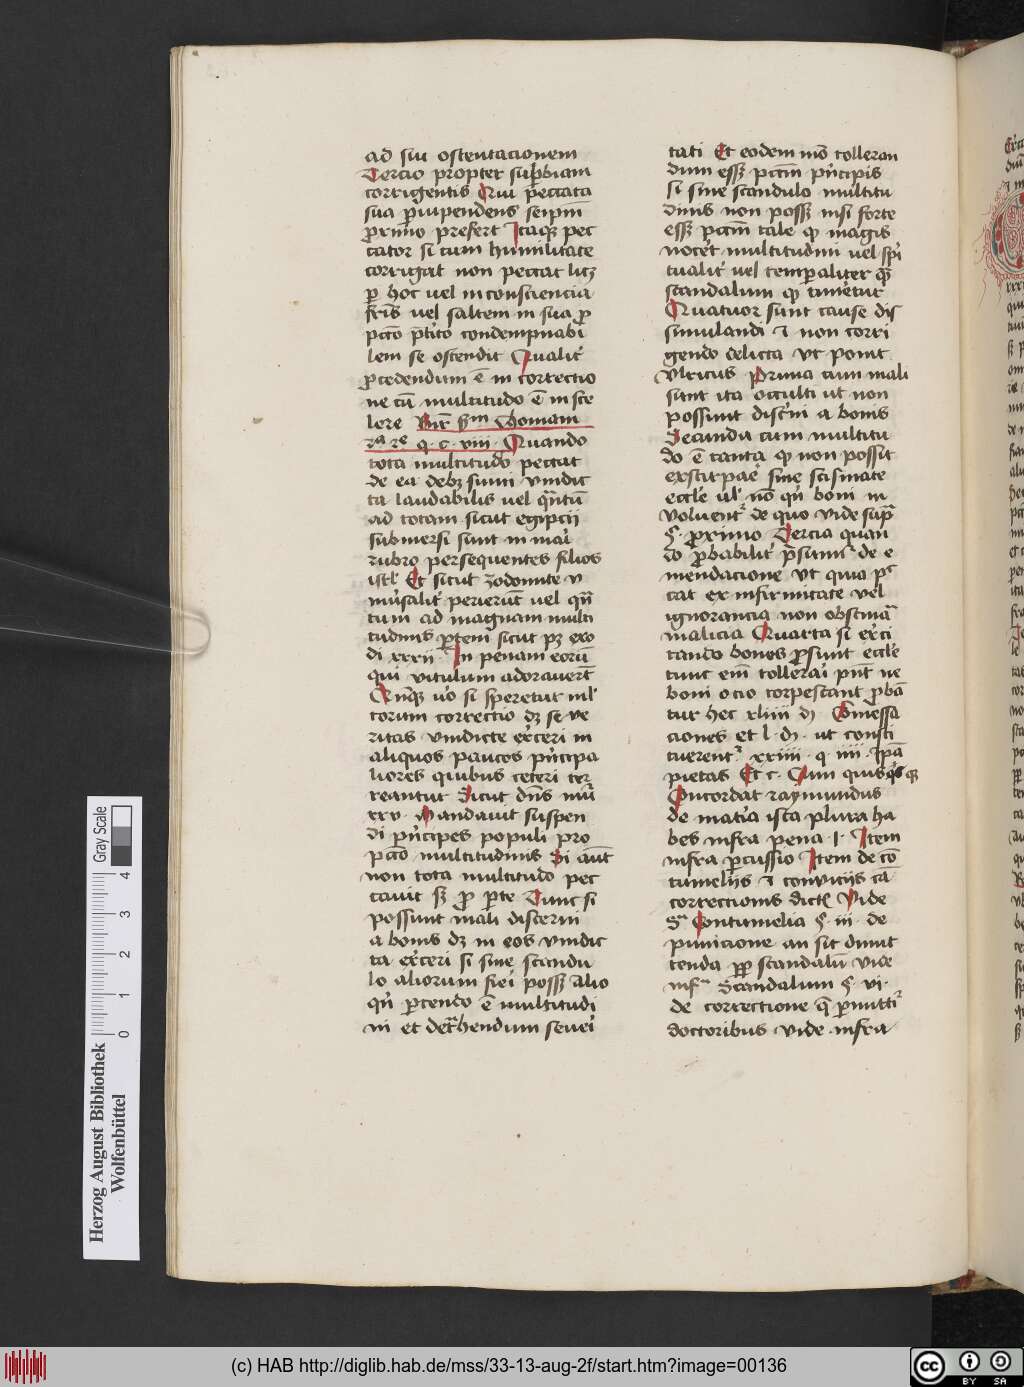 ad sui ostentacionem
Tercio propter sup̄biam
corrigentis Qui peccata
sua p̄iupendens seip̄m
proximo prefert Itaqꝫ pec
cator si cum humilitate
corrigat non peccat licꝫ
ꝑ hoc uel in consciencia
fr̄is uel saltem in sua ꝓ
pcc̄o p̄tito condempnabi
lem se ostendit Qualit̄
ꝓcedendum ē in correctio
ne cū multitudo ē in sce
lere Thomam
q c viii Quando
tota multitudo peccat
de ea debꝫ sumi vindic
ta laudabilis uel qn̄tū
ad totam sicut egipcii
submersi sunt in mari
rubro persequentes filios
isrl̄ Et sicut zodomite v
niu̓salit̄ perierūt uel qn̄
tum ad magnam multi
tudinis ꝑtem sicut pꝫ exo
di xxxii In penam eorū
qui vitulum adorauerūt
Qn̄qꝫ u̓o si speretur ml̄
torum correctio dꝫ se ve
ritas vindicte ex̓ceri in
aliquos paucos p̓ncipa
liores quibus ceteri ter
reantur Sicut dn̄s nūi
xxv Mandauit suspen
di p̓ncipes populi pro
pcc̄o multitudinis Si aūt
non tota multitudo pec
cauit sꝫ ꝓ ꝑte Tunc si
possunt mali discerni
a bonis dꝫ in eos vindic
ta ex̓ceri si sine scanda
lo aliorum fieri possꝫ alio
qn̄ ꝑcendo ē multitudi
ni et det̄hendum seueri
tati Et eodem mō tolleran
dum essꝫ pcc̄m p̓ncipis
si sine scandalo multitu
dinis non possꝫ nisi forte
essꝫ pcc̄m tale qd̄ magis
nocer̓t multitudini uel spi̓
tualit̄ uel temporaliter qm̄
scandalum qd̄ timetur
Quatuor sunt cause dis
simulandi ⁊ non corri
gendo delicta vt ponit
Vlricus Prima cum mali
sunt ita occulti ut non
possunt disc̓ni a bonis
Secunda cum multitu
do ē tanta qd̄ non possit
exstirpari sine scismate
eccl̄e ul̄ nō qn̄ boni in
voluent̓ de quo vide sup̄
§ proximo Tercia quan
do ꝓbabilit̄ p̄sumi̓ de e
mendacione vt quia pec
cat ex infirmitate vel
ignorancia non obstinā
malicia Quarta si ex̓ci
tando bonos ꝓsunt eccl̄e
tunc em̄ tollerari pn̄t ne
boni ocio corpescant ꝓba
tur hec xliiii di Comessa
ciones et l di ut consti
tuerent̓ xxiiii q iiii Ip̄a
pietas Et c Cum quisqͥs qꝫ
Concordat raymundus
de matia ista plura ha
bes infra pena I Item
infra ꝑcussio Item de cō
tumeliis ⁊ conviciis cā
correctionis dictis Vide
Sᵃ Contumelia § iii de
punicione an sit dimit
tenda ꝓp̄ scandalū vide
infᵃ Scandalum § vi
de correctione q̄ ꝑmitti̓
doctoribus vide infra
Herzog August Bibliothek
Wolfenbüttel
Gray Scale
0 1 2 3 4
(c) HAB http://diglib.hab.de/mss/33-13-aug-2f/start.htm?image=00136
cc BY SA